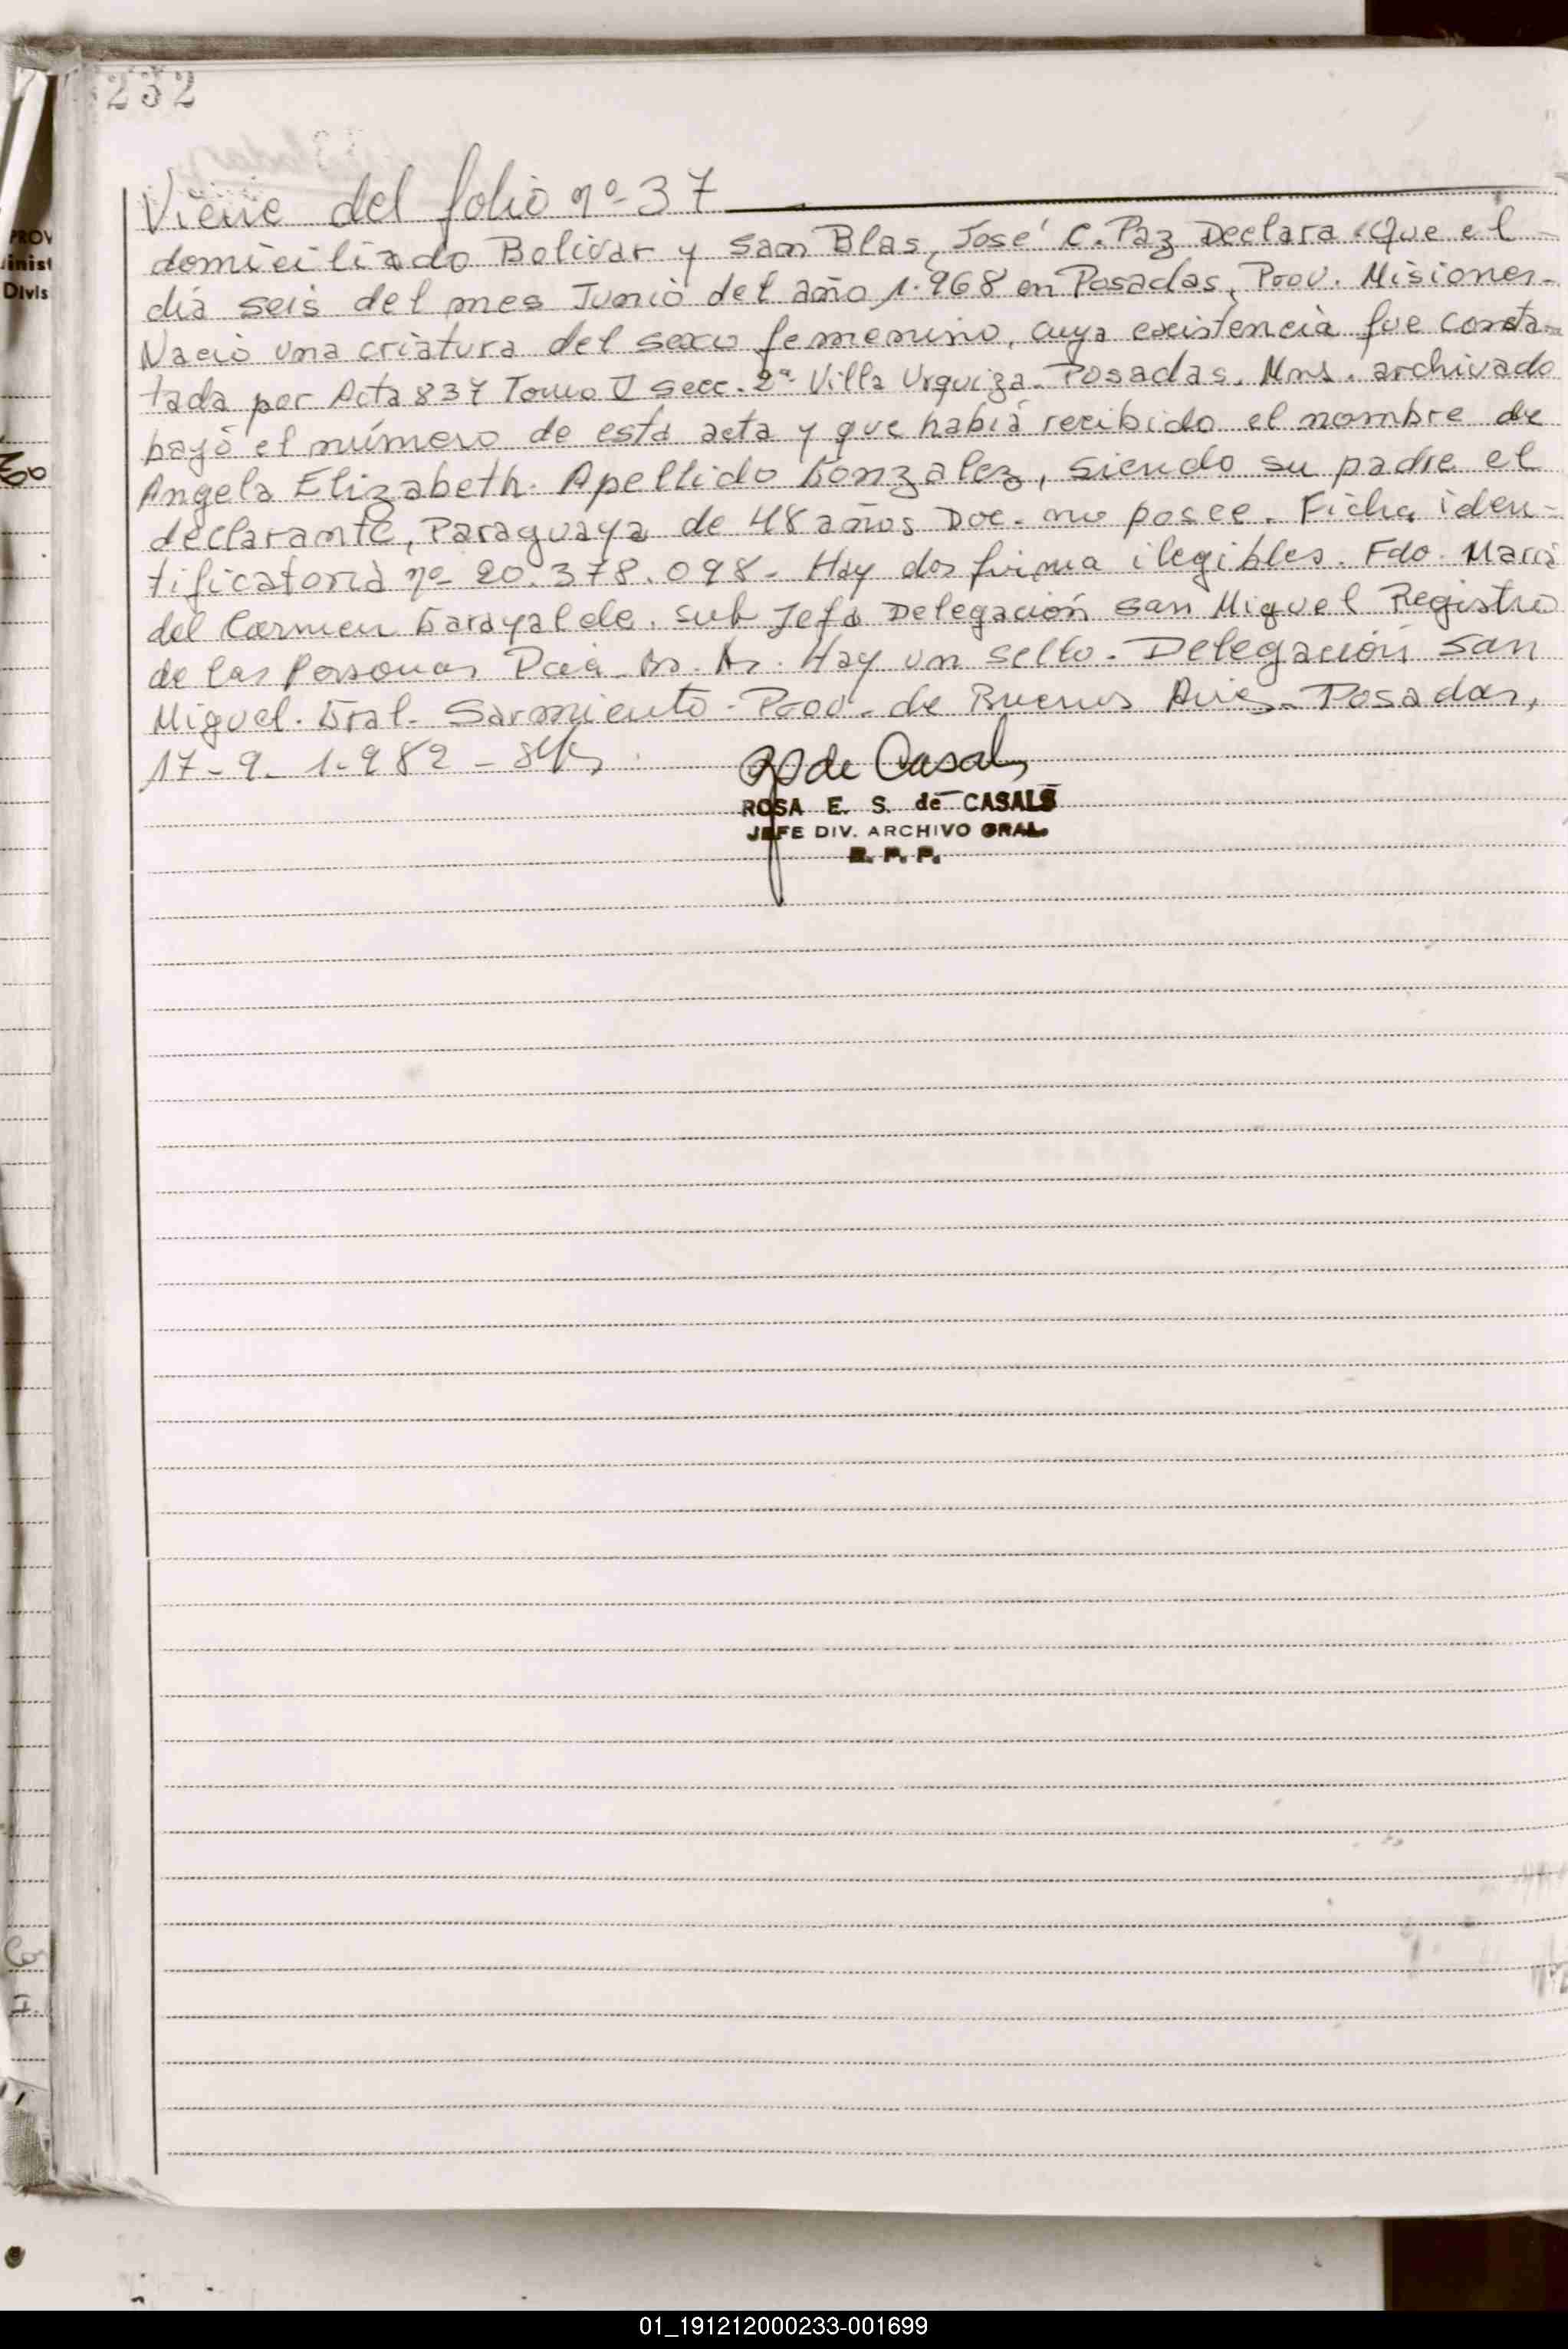 232
Viene del folio nº 37
domiciliado Bolivar y San Blas, José C. Paz Declara: Que el
día seis del mes Junio del año 1.968 en Posadas, Prov. Misiones-
Nació una criatura del sexo femenino, cuya existencia fue consta-
tada por Acta 837 Tomo V Secc. 2ª Villa Urquiza. Posadas. Mns. archivado
bajo el número de esta acta y que había recibido el nombre de
Angela Elizabeth. Apellido Gonzalez, siendo su padre el
declarante, Paraguaya de 48 años Doc. no posee. Ficha iden-
tificatoria nº 20.378.098- Hay dos firma ilegibles. Fdo. María
del Carmen Garayalde. Sub Jefa Delegación San Miguel Registro
de las Personas Pcia. Bs. As. Hay un sello. Delegación San
Miguel. Gral. Sarmiento - Prov. de Buenos Aires. Posadas,
17-9-1.982 -
de Casals
ROSA E. S. de CASALS
JEFE DIV. ARCHIVO GRAL.
R. P. P.
PROV
inist
Divis
01_191212000233-001699